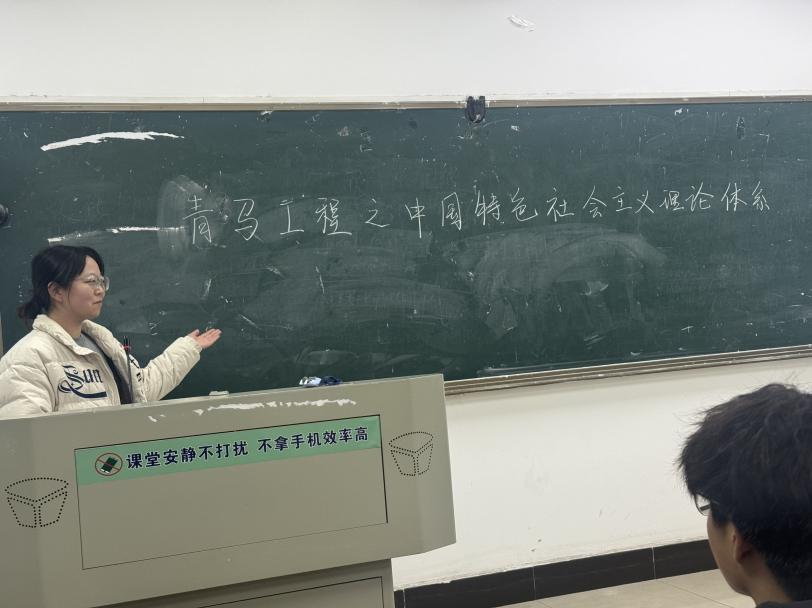 青马工程之中国特色社会主义理论体系
Sun
课堂安静不打扰 不拿手机效率高